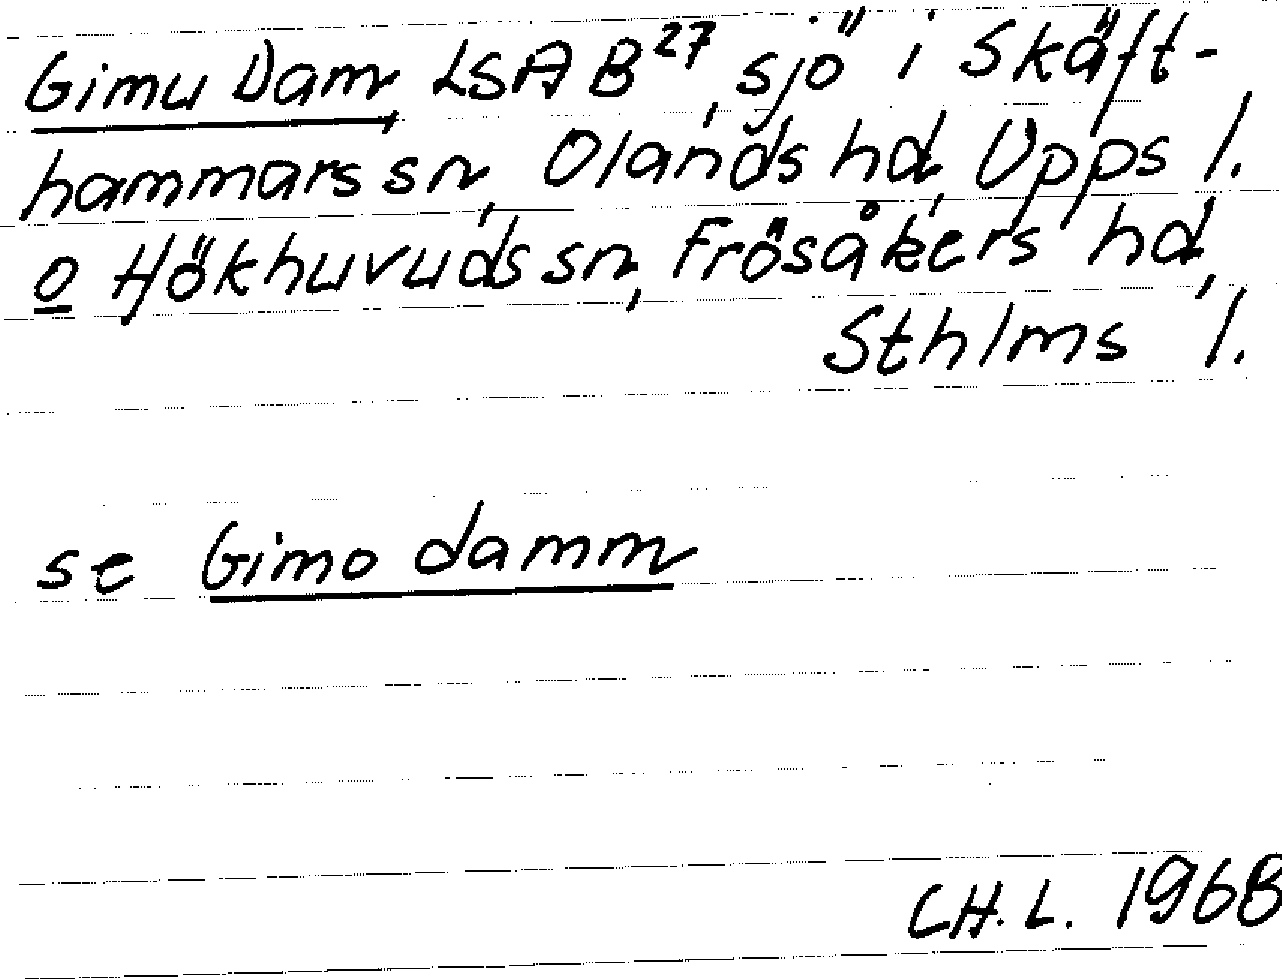 Gimu Dam, LSA B27, sjö i Skäft-
hammars sn, Olands hd, Upps l.
o Hökhuvuds sn, Frösåkers hd,
Sthlms l.
se Gimo damm
CH. L. 1968